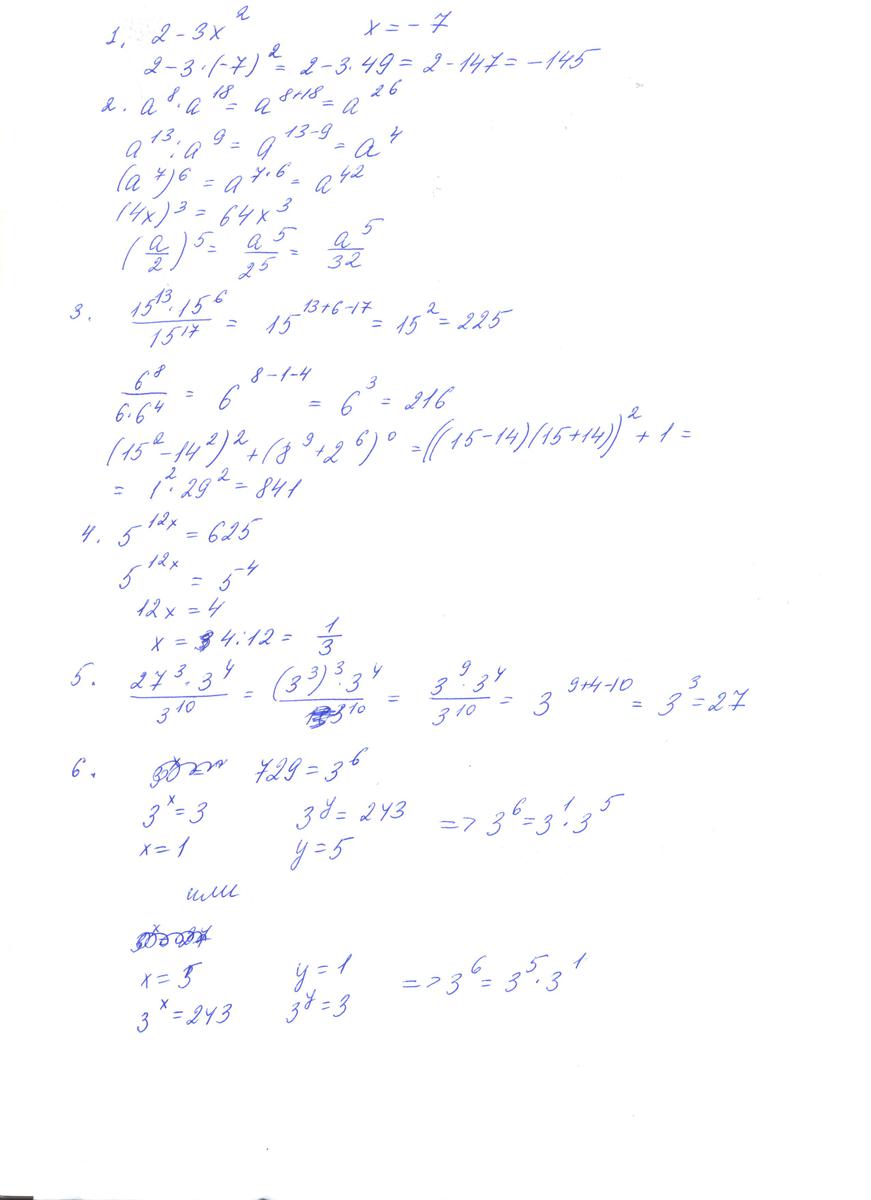 1. 2 - 3x² x = - 7
2 - 3·(-7)² = 2 - 3·49 = 2 - 147 = -145
2. a⁸·a¹⁸ = a⁸⁺¹⁸ = a²⁶
a¹³:a⁹ = a¹³⁻⁹ = a⁴
(a⁷)⁶ = a^(7·6) = a⁴²
(4x)³ = 64x³
(a/2)⁵ = a⁵/2⁵ = a⁵/32
3. (15¹³·15⁶)/15¹⁷ = 15¹³⁺⁶⁻¹⁷ = 15² = 225
6⁸/(6·6⁴) = 6⁸⁻¹⁻⁴ = 6³ = 216
(15²-14²)² + (8⁹+2⁶)⁰ = ((15-14)(15+14))² + 1 =
= 1²·29² = 841
4. 5^(12x) = 625
5^(12x) = 5⁻⁴
12x = 4
x = 4:12 = 1/3
5. (27³·3⁴)/3¹⁰ = ((3³)³·3⁴)/3¹⁰ = (3⁹·3⁴)/3¹⁰ = 3⁹⁺⁴⁻¹⁰ = 3³ = 27
6. 729 = 3⁶
3ˣ = 3 3ʸ = 243 => 3⁶ = 3¹·3⁵
x = 1 y = 5
или
x = 5 y = 1 => 3⁶ = 3⁵·3¹
3ˣ = 243 3ʸ = 3